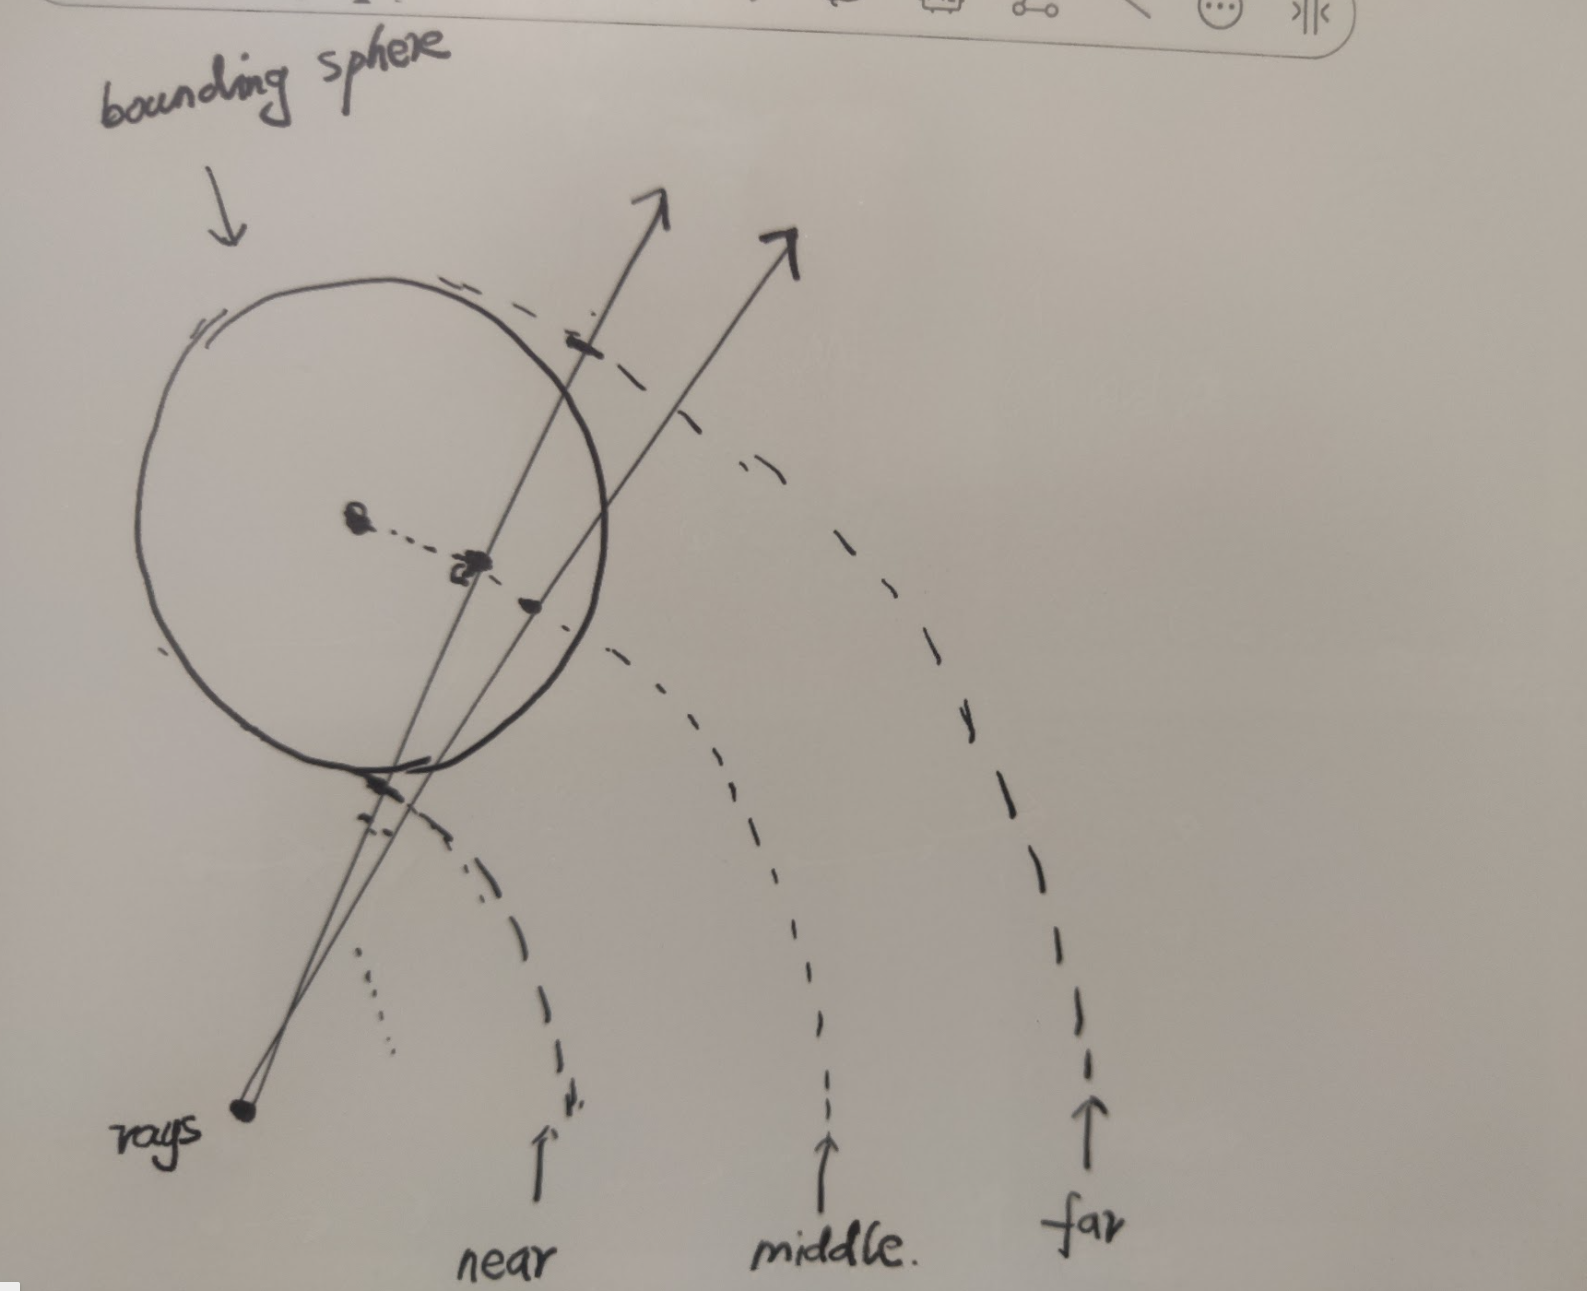 bounding sphere
rays
near
middle.
far